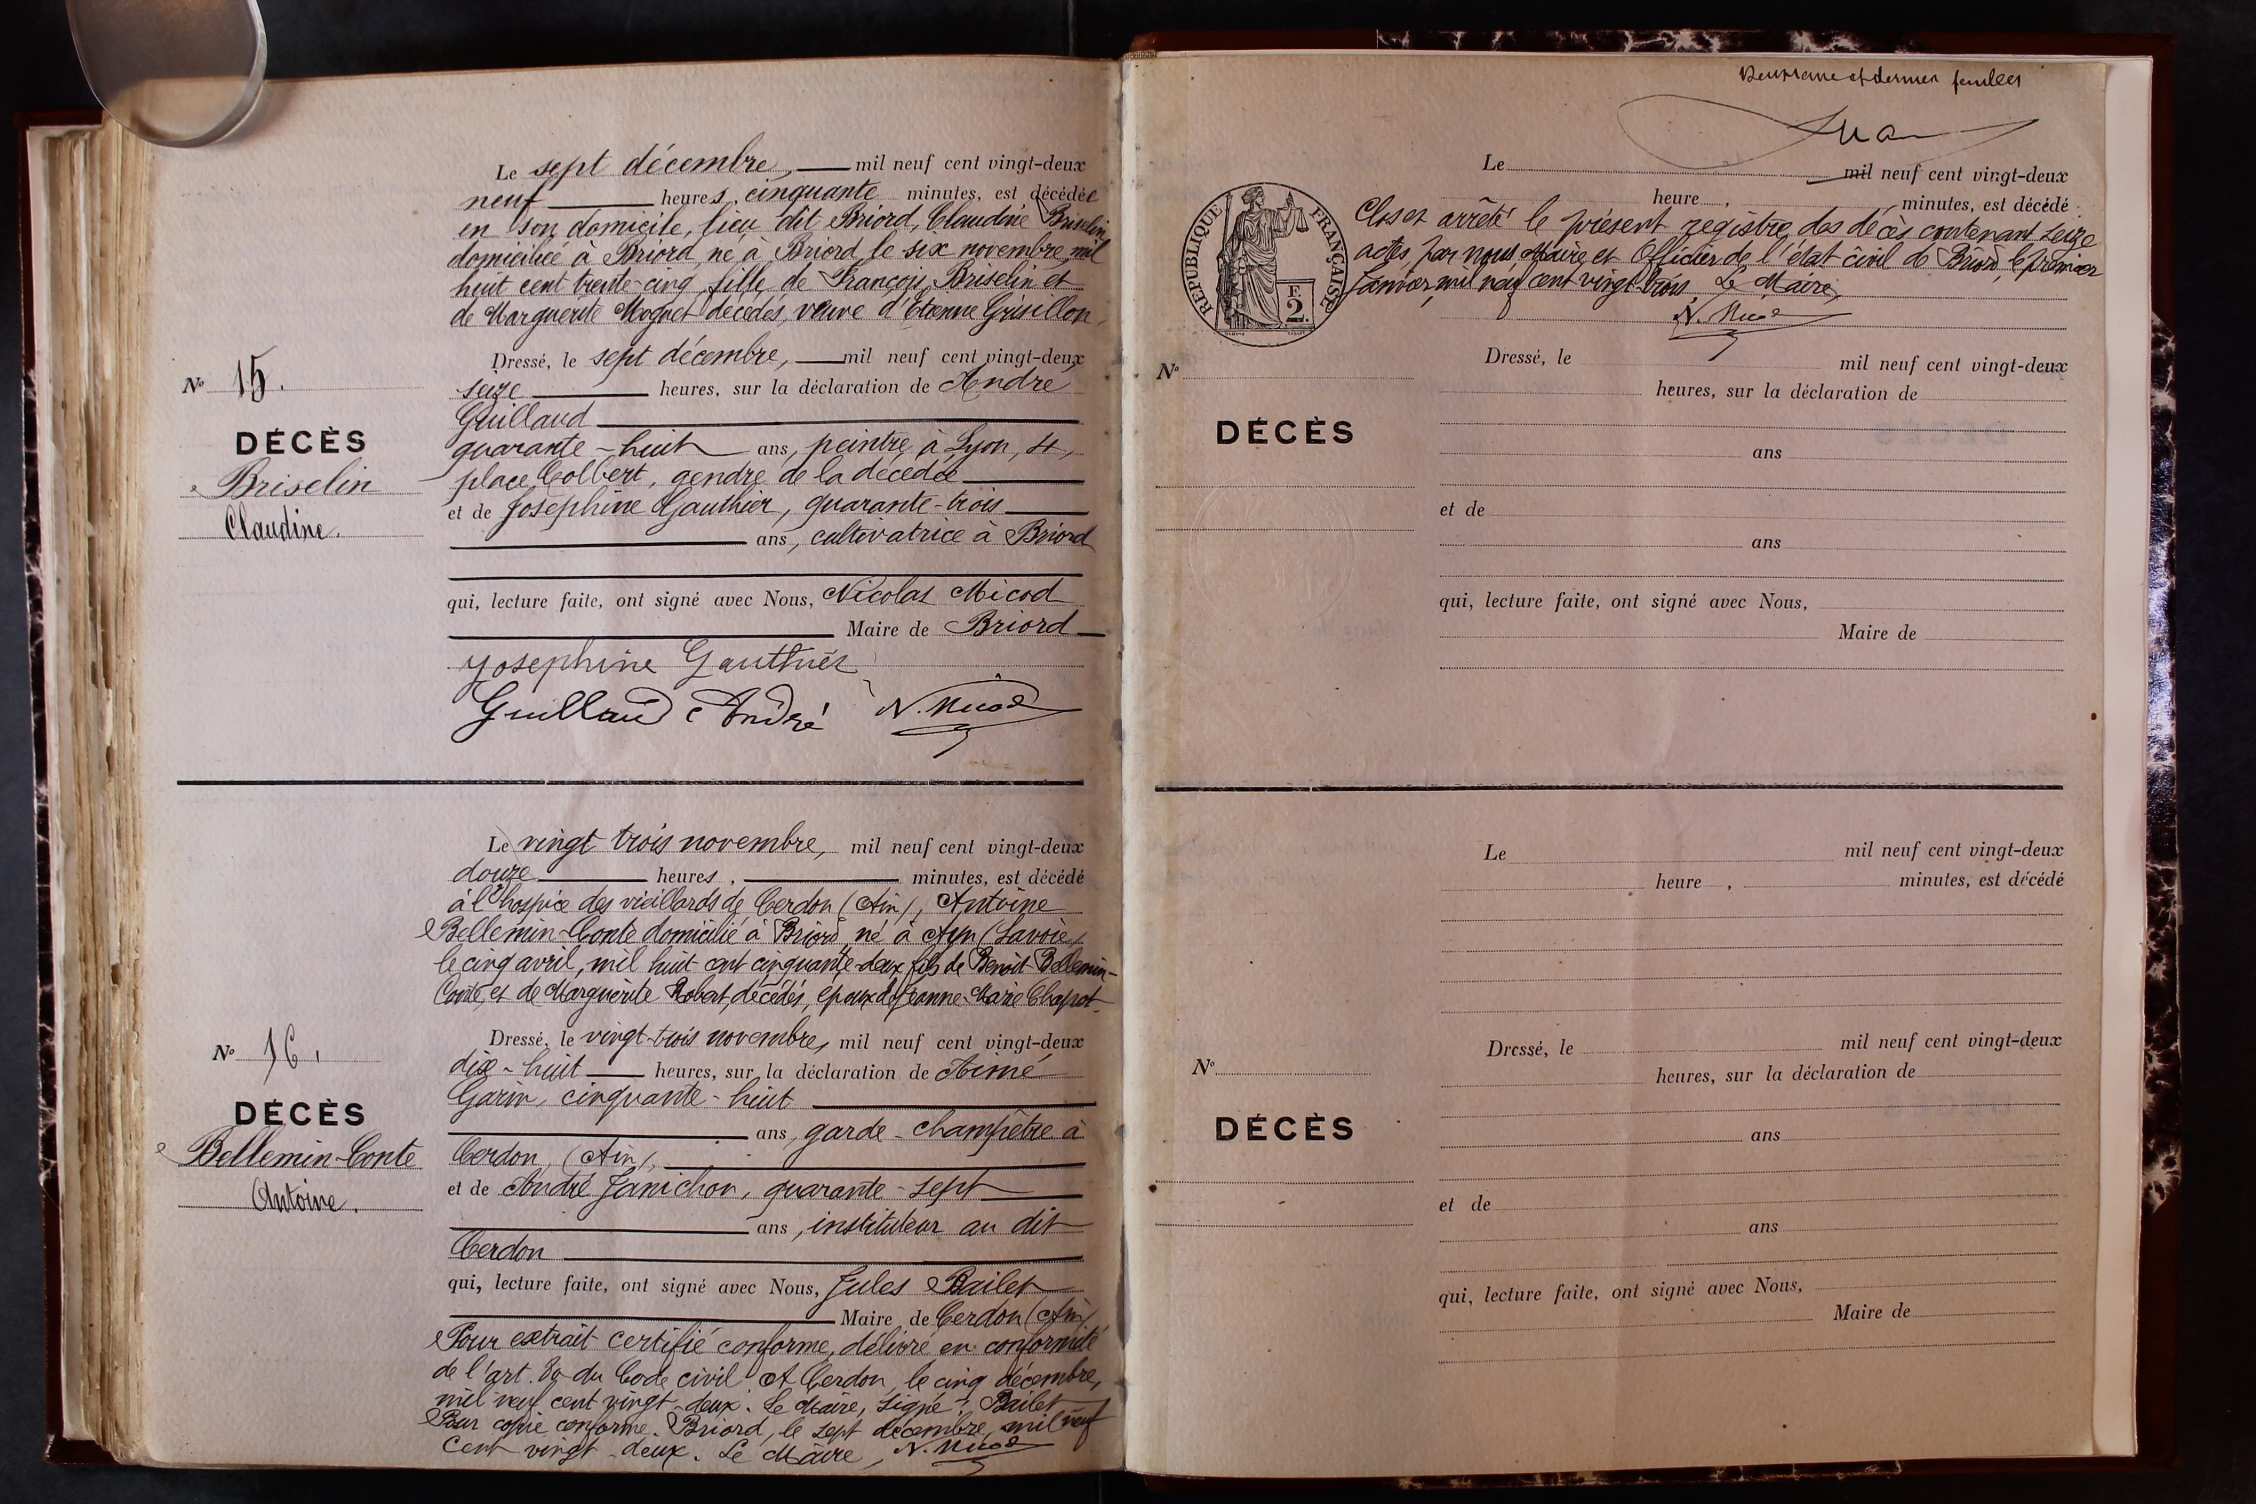 Le sept décembre, mil neuf cent vingt-deux
neuf heures, cinquante minutes, est décédée
en son domicile, lieu dit Briord, Claudine Briselin
domiciliée à Briord, né à Briord le six novembre mil
huit cent trente-cinq, fille de François Briselin et
de Marguerite Moguet décédés, veuve d'Etienne Grisillon,
Dressé, le sept décembre, mil neuf cent vingt-deux
seize heures, sur la déclaration de André
Guillaud
quarante-huit ans, peintre à Lyon, 4,
place Colbert, gendre de la décédée
et de Joséphine Gauthier, quarante-trois
ans, cultivatrice à Briord
qui, lecture faite, ont signé avec Nous, Nicolas Micod
Maire de Briord
Josephine Gauthier
Guillaud André N. Micod
No 15.
DÉCÈS
Briselin
Claudine.
Le vingt trois novembre, mil neuf cent vingt-deux
douze heures, minutes, est décédé
à l'hospice des vieillards de Cerdon (Ain), Antoine
Bellemin-Conte domicilié à Briord, né à Ayn (Savoie)
le cinq avril, mil huit cent cinquante-deux fils de Benoit Bellemin-
Conte, et de Marguerite Robert, décédés, époux de Jeanne-Marie Chapot
Dressé, le vingt-trois novembre, mil neuf cent vingt-deux
dix-huit heures, sur la déclaration de Aimé
Garin, cinquante-huit
ans, garde-champêtre à
Cerdon, (Ain),
et de André Janichon, quarante-sept
ans, instituteur au dit
Cerdon
qui, lecture faite, ont signé avec Nous, Jules Bailet
Maire de Cerdon (Ain)
Pour extrait certifié conforme, délivré en conformité
de l'art. 80 du Code civil. A Cerdon, le cinq décembre,
mil neuf cent vingt-deux. Le Maire, signé: Bailet
Pour copie conforme. Briord, le sept décembre, mil neuf
cent vingt-deux. Le Maire, N. Micod
No 16.
DÉCÈS
Bellemin-Conte
Antoine.
Deuxième et dernier feuillet
RÉPUBLIQUE FRANÇAISE
F.
2.
Le mil neuf cent vingt-deux
heure , minutes, est décédé
Clos et arrêté le présent registre des décès contenant seize
actes par nous Maire et Officier de l'état civil de Briord, le premier
Janvier, mil neuf cent vingt-trois. Le Maire,
N. Micod
Dressé, le mil neuf cent vingt-deux
heures, sur la déclaration de
ans
et de
ans
qui, lecture faite, ont signé avec Nous,
Maire de
No
DÉCÈS
Le mil neuf cent vingt-deux
heure , minutes, est décédé
Dressé, le mil neuf cent vingt-deux
heures, sur la déclaration de
ans
et de
ans
qui, lecture faite, ont signé avec Nous,
Maire de
No
DÉCÈS